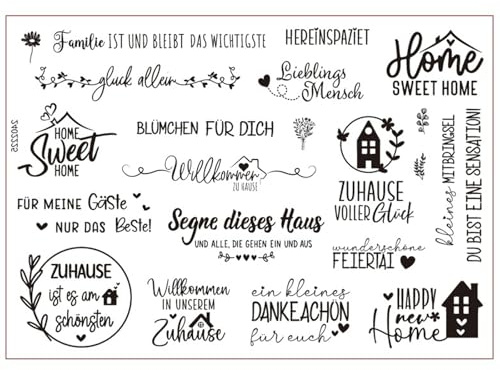 Familie IST UND BLEIBT DAS WICHTIGSTE
HEREINSPAZIET
Home
SWEET HOME
glück allein
Lieblings
Mensch
2402225
HOME
Sweet
HOME
BLÜMCHEN FÜR DICH
Willkommen
ZU HAUSE
ZUHAUSE
VOLLER Glück
kleines MITBRINGSEL
DU BIST EINE SENSATION!
FÜR MEINE GÄSTE
NUR DAS Beste!
Segne dieses Haus
UND ALLE, DIE GEHEN EIN UND AUS
wunderschöne
FEIERTAI
ZUHAUSE
ist es am
schönsten
Willkommen
IN UNSEREM
Zuhause
ein kleines
DANKEACHÖN
für euch
HAPPY
new
Home